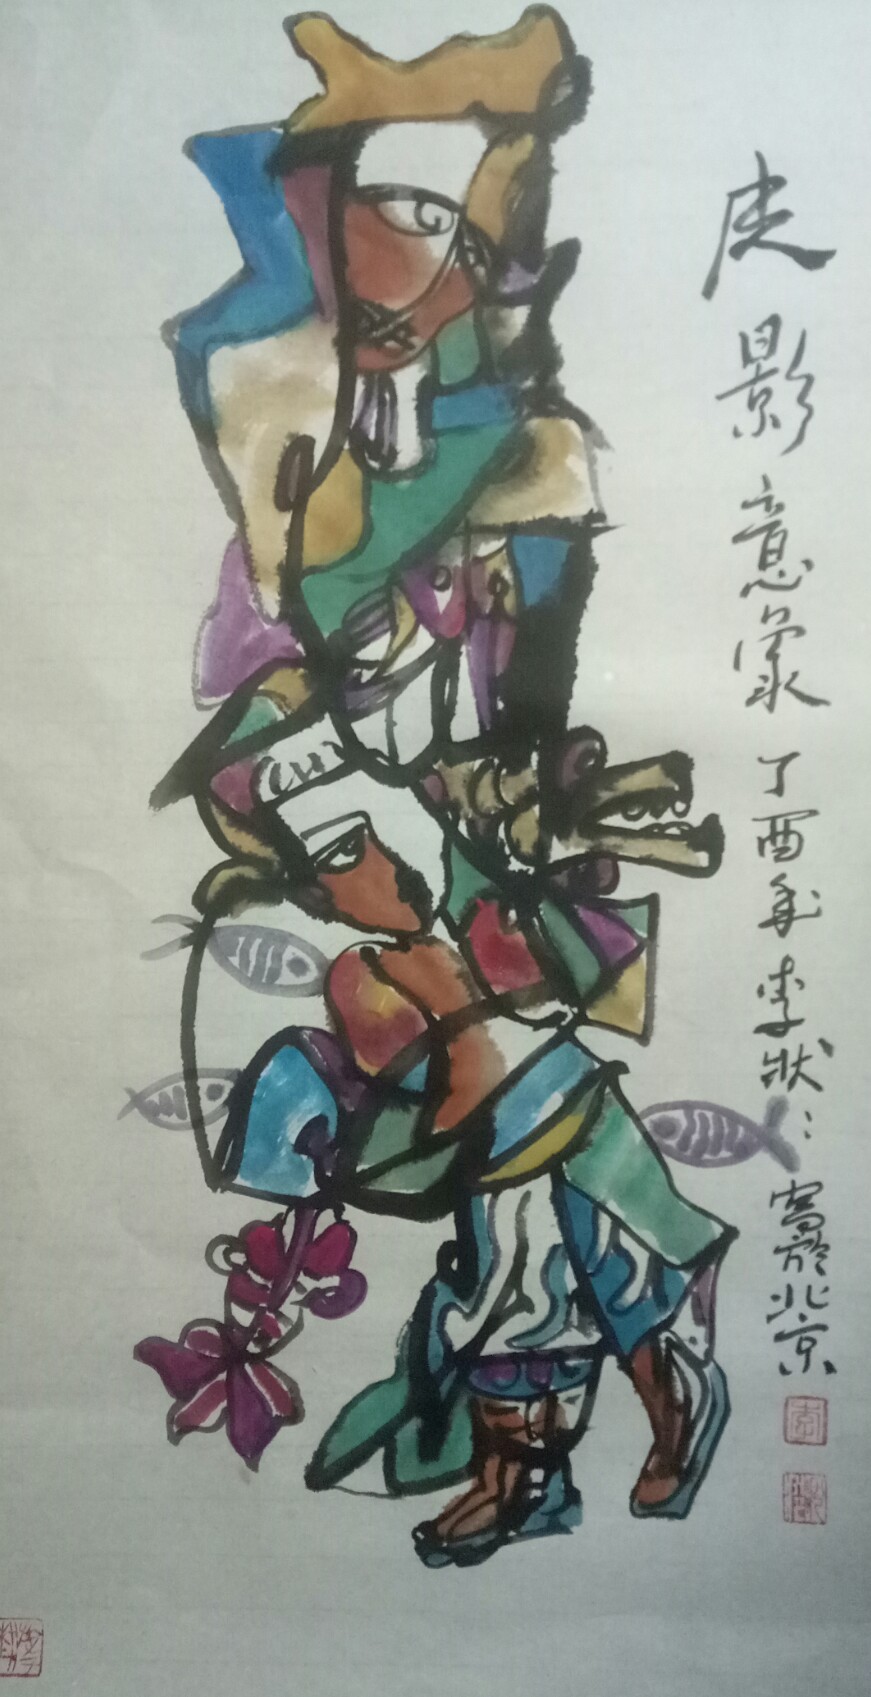 皮影意象 丁酉年李狀寫於北京
李